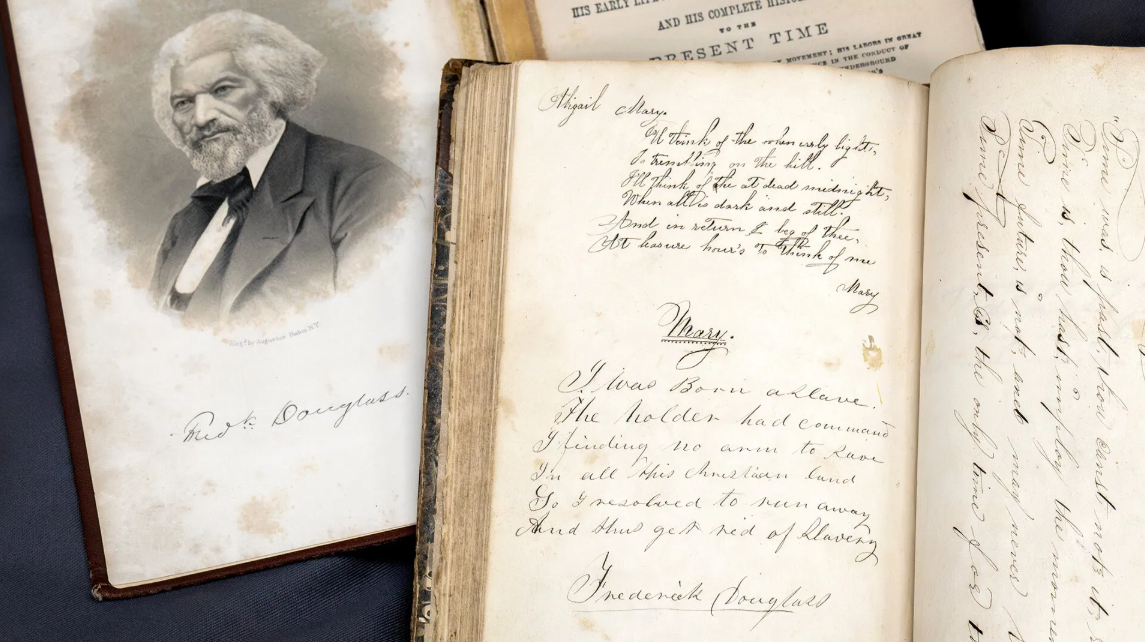 HIS EARLY
AND HIS COMPLETE
TO THE
PRESENT TIME
MOVEMENT; HIS LABORS IN GREAT
IN THE CONDUCT OF
UNDERGROUND
Eng'd by Augustus Robin N.Y.
Fredk Douglass.
Abigail Mary.
I'll think of the when early light,
Is trembling on the hill.
I'll think of the at dead midnight,
When all is dark and still.
And in return I beg of thee,
At leasure hour's to think of me
Mary
Mary.
I was Born a slave.
The holder had command
I finding no arm to save
In all this Christian land
So I resolved to run away
And thus get rid of Slavery
Frederick Douglass
"Time was, is past, thou canst not it,
Time is, thou hast, employ the
Time future, is not, and may never
Time present, is the only time for